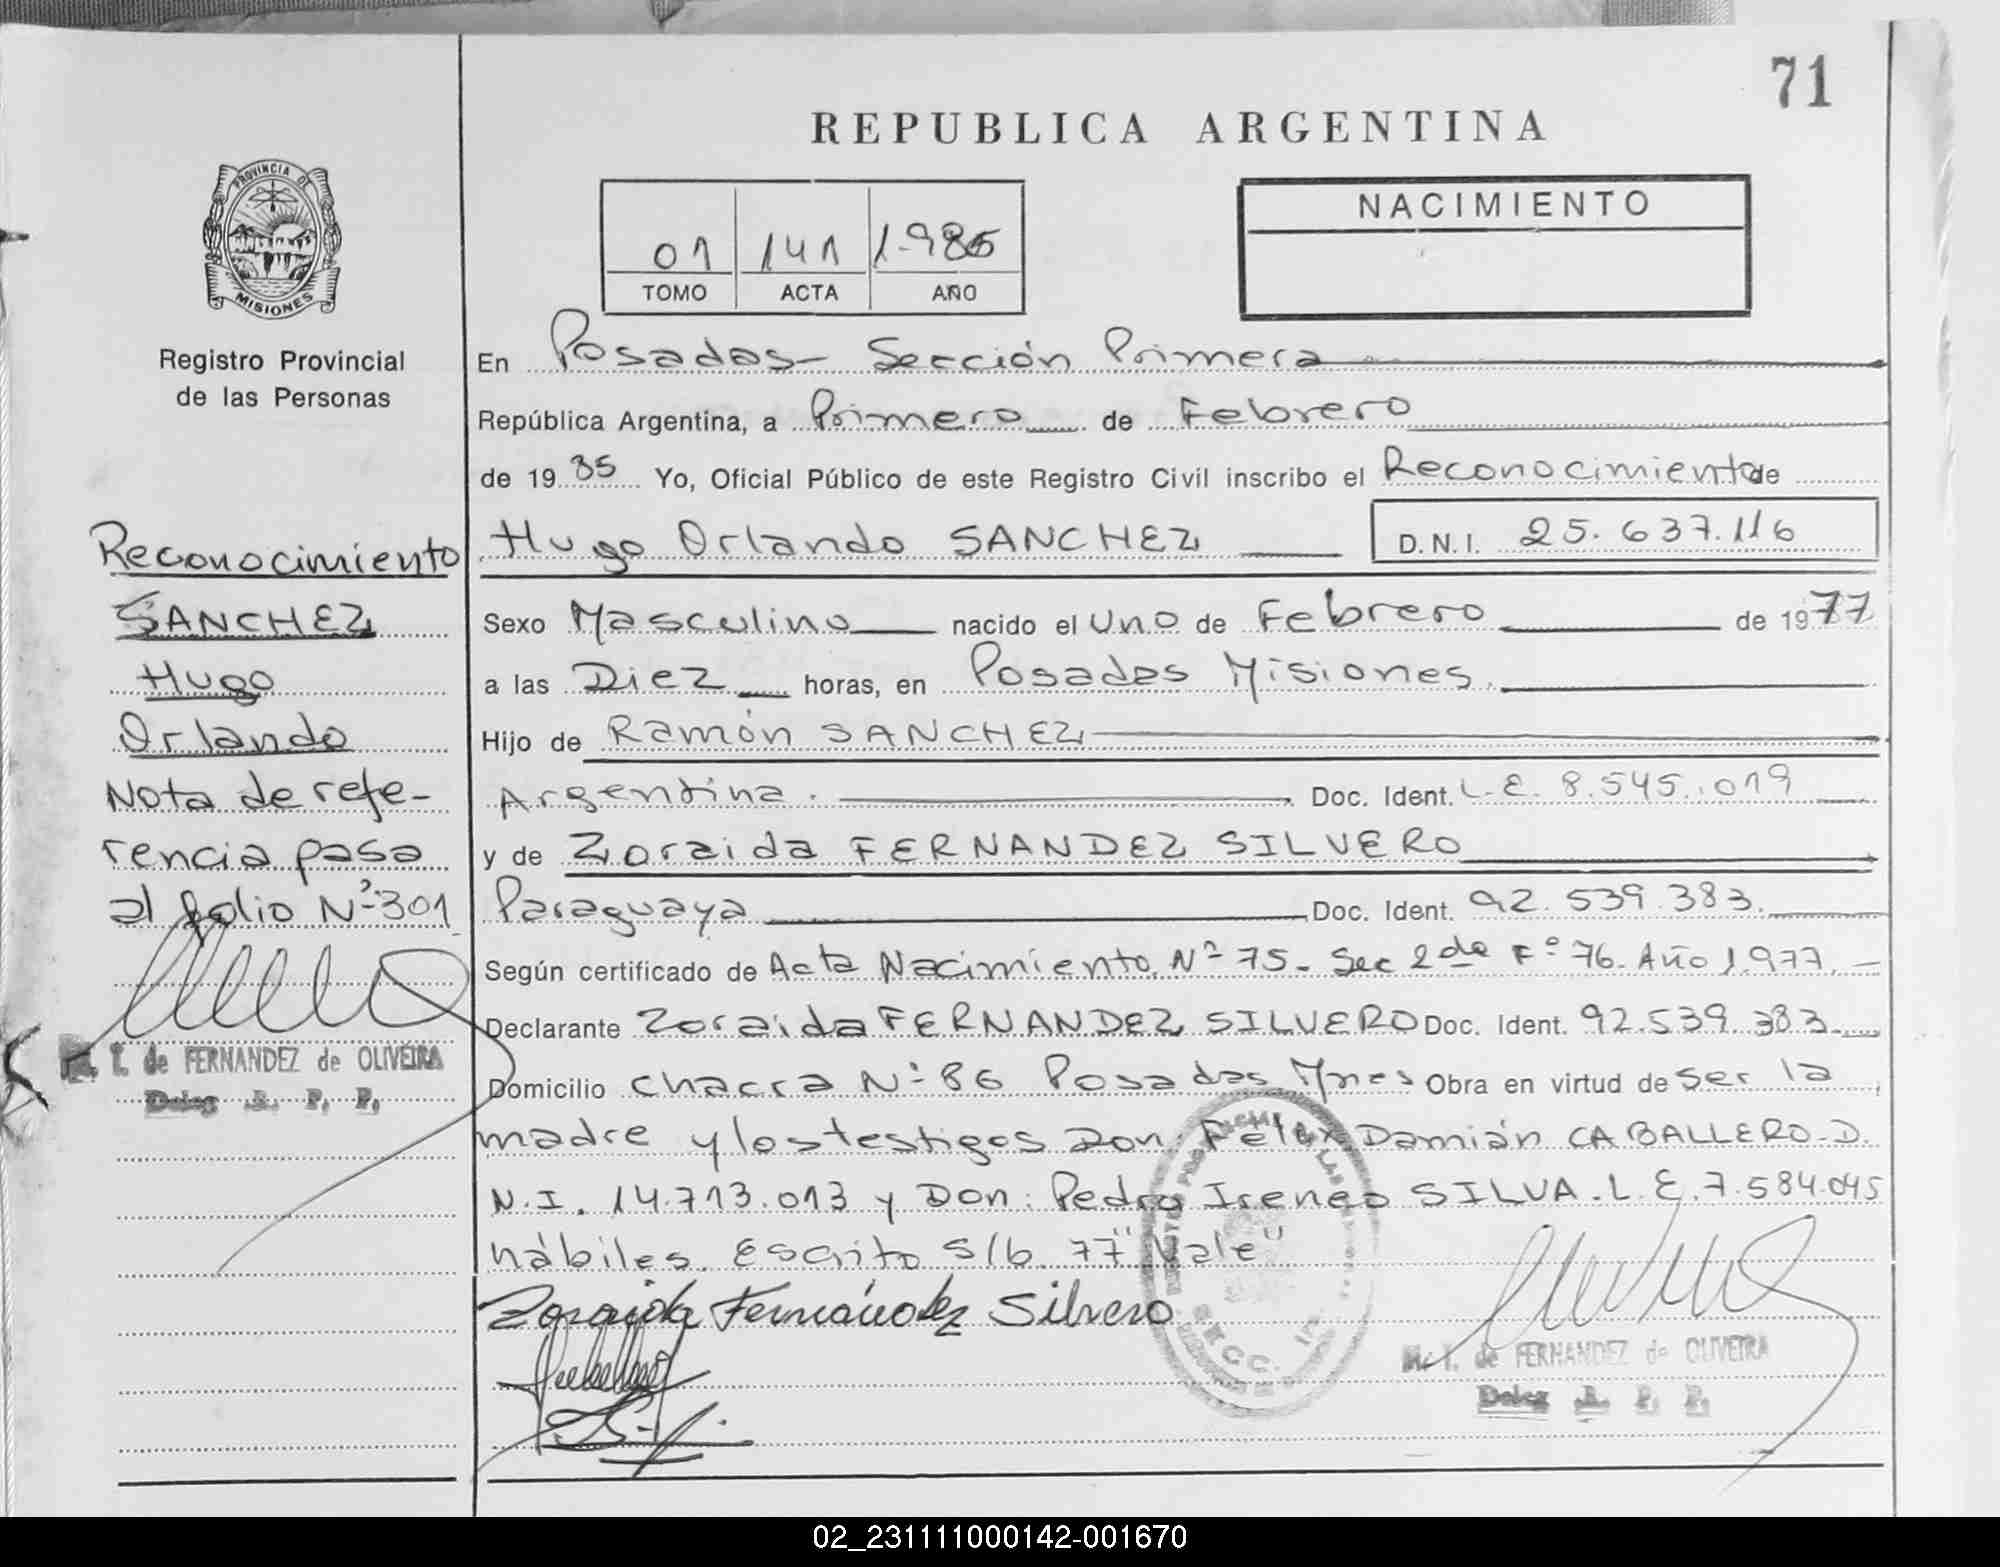 71
REPUBLICA ARGENTINA
PROVINCIA DE
MISIONES
Registro Provincial
de las Personas
01 141 1.985
TOMO ACTA AÑO
NACIMIENTO
En Posadas - Sección Primera
República Argentina, a Primero de Febrero
de 19 85 Yo, Oficial Público de este Registro Civil inscribo el Reconocimiento de
Hugo Orlando SANCHEZ D.N.I. 25.637.116
Sexo Masculino nacido el Uno de Febrero de 1977
a las Diez horas, en Posadas Misiones.
Hijo de Ramón SANCHEZ
Argentina. Doc. Ident. L.E. 8.545.019
y de Zoraida FERNANDEZ SILVERO
Paraguaya Doc. Ident. 92.539.383.
Según certificado de Acta Nacimiento Nº 75- Sec 2da Fº 76- Año 1.977.-
Declarante Zoraida FERNANDEZ SILVERO Doc. Ident. 92.539.383.
Domicilio chacra Nº 86 Posadas Mnes Obra en virtud de ser la
madre y los testigos Don: Felix Damián CABALLERO-D.
N.I. 14.713.013 y Don: Pedro Ireneo SILVA.L.E.7.584.045
hábiles. Escrito s/b. 77 "Vale"
Zoraida Fernández Silvero
M. I. de FERNANDEZ de OLIVEIRA
Deleg R. P. P.
Reconocimiento
SANCHEZ
Hugo
Orlando
Nota de refe-
rencia pasa
al folio Nº 301
M. I. de FERNANDEZ de OLIVEIRA
Deleg R. P. P.
02_231111000142-001670